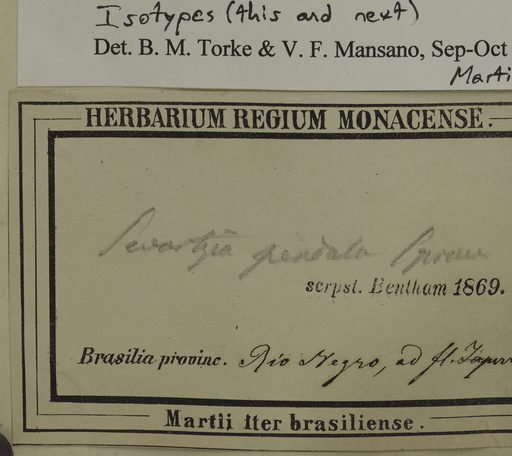 Isotypes (this and next)
Det. B. M. Torke & V. F. Mansano, Sep-Oct
Marti
HERBARIUM REGIUM MONACENSE.
Swartzia pendula Spruce
scrpst. Bentham 1869.
Brasilia provinc. Rio Negro, ad fl. Japur
Martii Iter brasiliense.